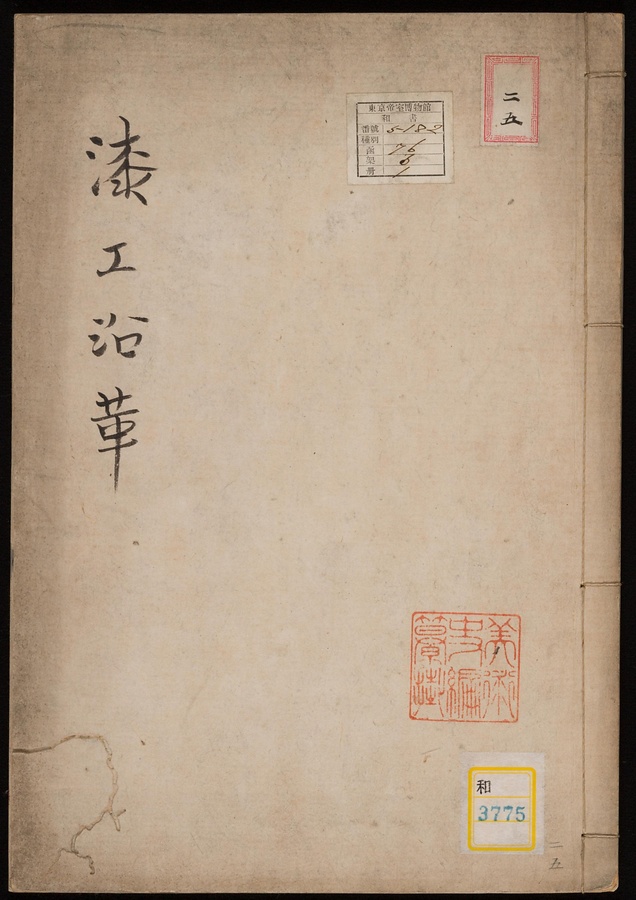 漆工沿革
二五
東京帝室博物館
和書
番號 5-182
種別
函 76
架 3
册 1
美術
史編
纂掛
和
3775
二五